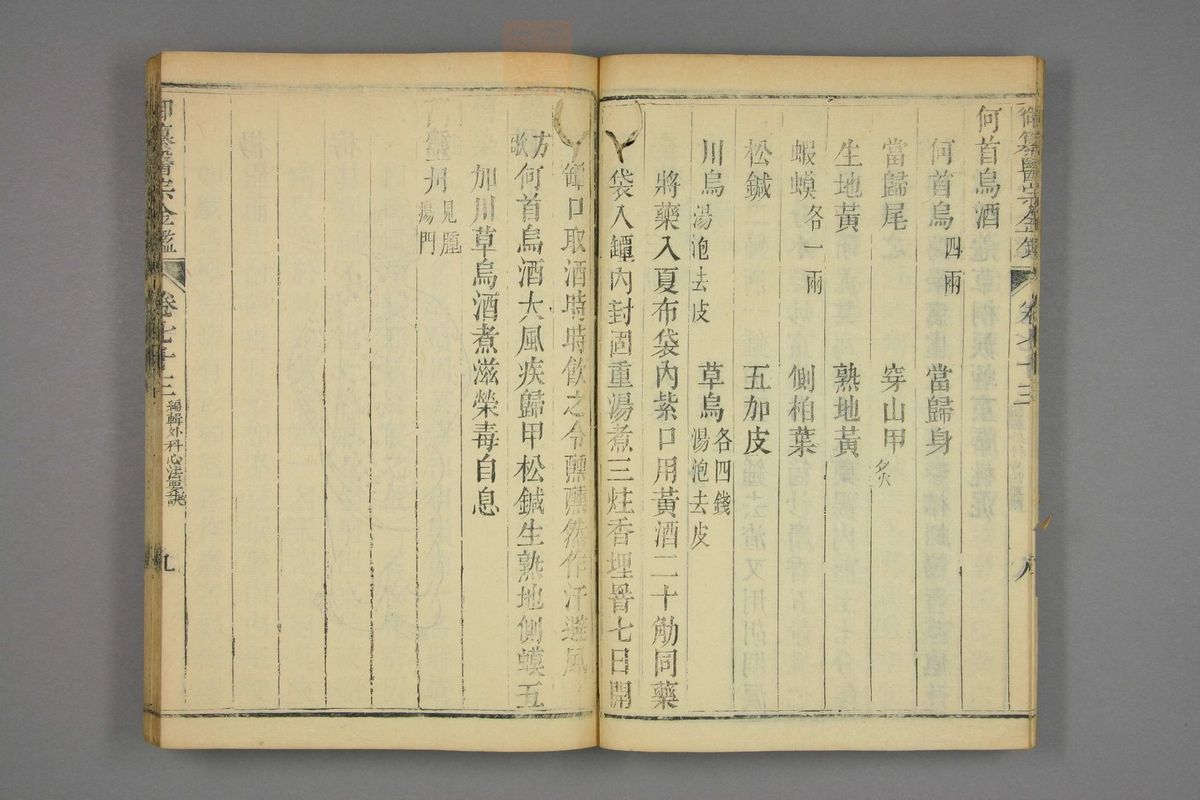 御纂醫宗金鑑
卷七十三
何首烏酒
何首烏 四兩 當歸身
當歸尾 穿山甲 炙
生地黃 熟地黃
蝦蟆 各一兩 側柏葉
松鍼 五加皮
川烏 湯泡去皮 草烏 各四錢 湯泡去皮
將藥入夏布袋內紮口用黃酒二十觔同藥
袋入罈內封固重湯煮三炷香埋窨七日開
罈口取酒時時飲之令醺醺然作汗避風
方歌 何首烏酒大風疾歸甲松鍼生熟地側蟆五
加川草烏酒煮滋榮毒自息
見腫
瘍門
御纂醫宗金鑑
卷七十三
編輯外科心法要訣
九